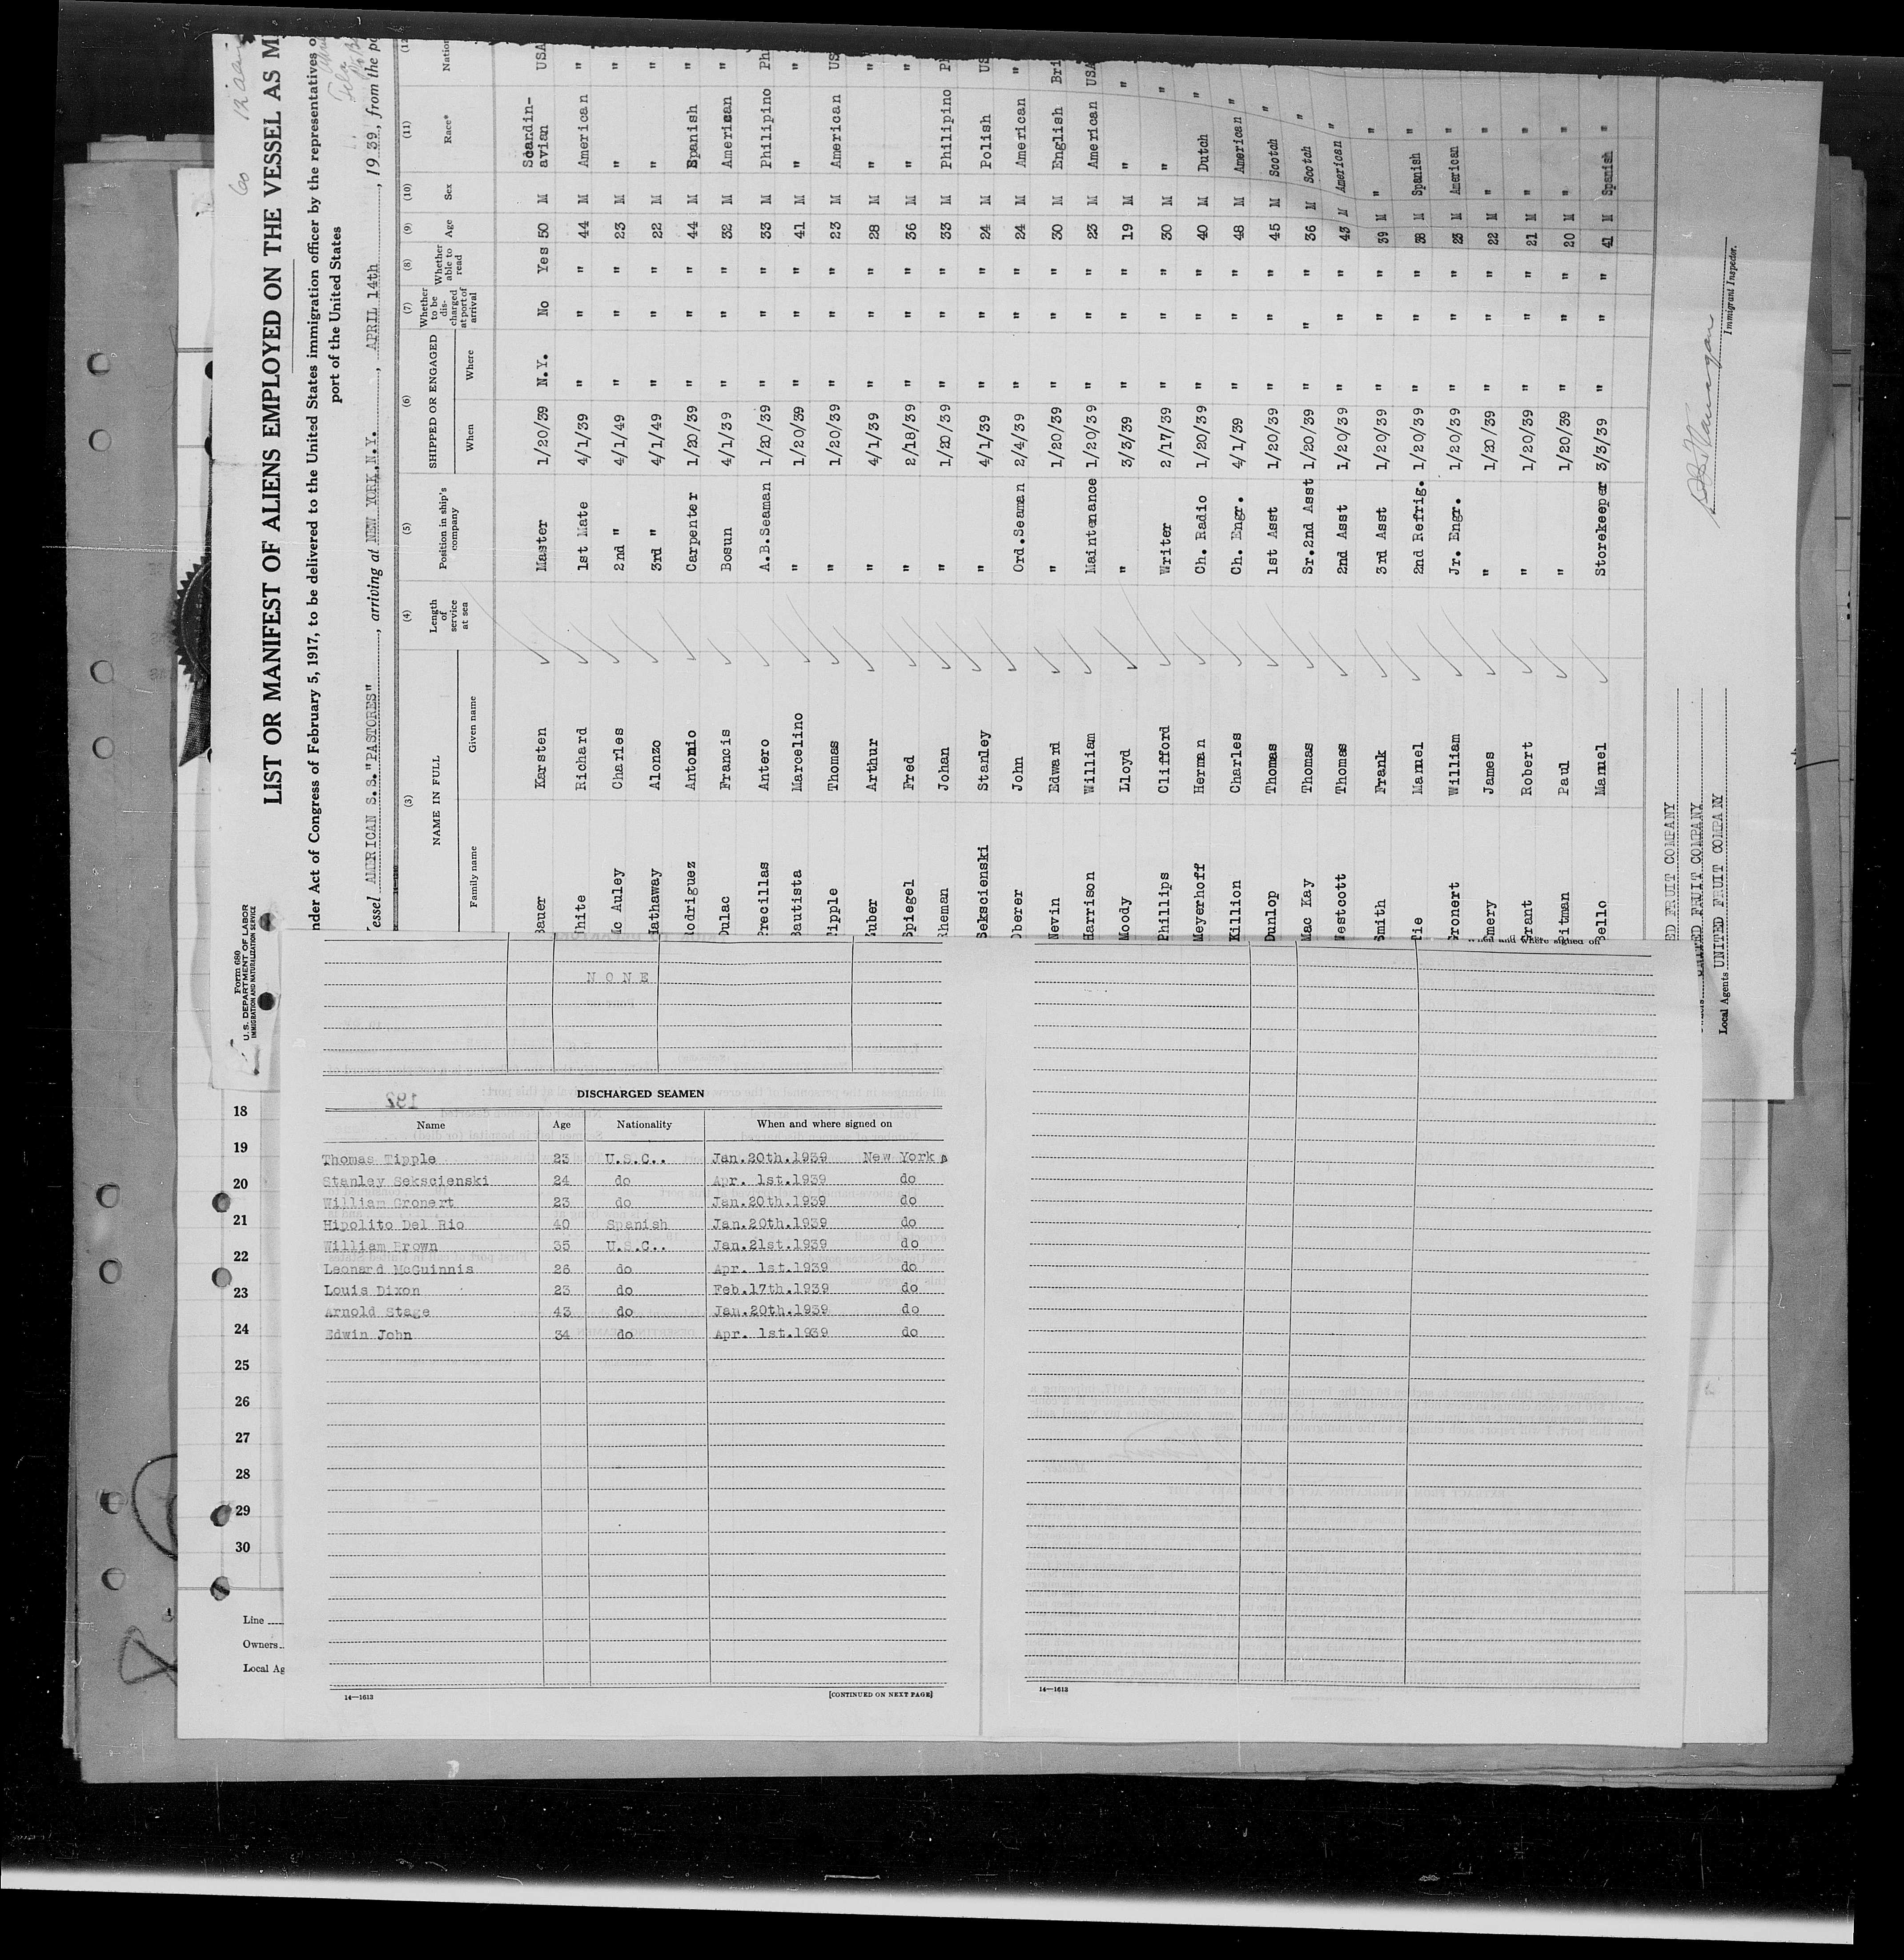 60
LIST OR MANIFEST OF ALIENS EMPLOYED ON THE VESSEL AS M
nder Act of Congress of February 5, 1917, to be delivered to the United States immigration officer by the representatives o
port of the United States
essel AMERICAN S.S."PASTORES", arriving at NEW YORK,N.Y., APRIL 14th, 1939, from the po
Form 680
U. S. DEPARTMENT OF LABOR
IMMIGRATION AND NATURALIZATION SERVICE
(3) (4) (5) (6) (7) (8) (9) (10) (11) (12
NAME IN FULL Length of service at sea Position in ship's company SHIPPED OR ENGAGED Whether to be discharged at port of arrival Whether able to read Age Sex Race* Nation
Family name Given name When Where
Bauer Karsten Master 1/20/39 N.Y. No Yes 50 M Scandin-avian USA
hite Richard 1st Mate 4/1/39 " " " 44 M American "
c Auley Charles 2nd " 4/1/49 " " " 23 M " "
athaway Alonzo 3rd " 4/1/49 " " " 22 M " "
odriguez Antonio Carpenter 1/20/39 " " " 44 M Spanish "
Dulac Francis Bosun 4/1/39 " " " 32 M American "
Precillas Antero A.B.Seaman 1/20/39 " " " 33 M Philipino Ph
Bautista Marcelino " 1/20/39 " " " 41 M " "
Tipple Thomas " 1/20/39 " " " 23 M American US
uber Arthur " 4/1/39 " " " 28 M " "
Spiegel Fred " 2/18/39 " " " 36 M " "
heman Johan " 1/20/39 " " " 33 M Philipino Ph
Sekscienski Stanley " 4/1/39 " " " 24 M Polish US
Oberer John Ord.Seaman 2/4/39 " " " 24 M American "
Nevin Edward " 1/20/39 " " " 30 M English Bri
Harrison William Maintenance 1/20/39 " " " 23 M American USA
Moody Lloyd " 3/3/39 " " " 19 M " "
Phillips Clifford Writer 2/17/39 " " " 30 M " "
Meyerhoff Herman Ch. Radio 1/20/39 " " " 40 M Dutch "
Killion Charles Ch. Engr. 4/1/39 " " " 48 M American "
Dunlop Thomas 1st Asst 1/20/39 " " " 45 M Scotch "
Mac Kay Thomas Sr.2nd Asst 1/20/39 " " " 36 M Scotch "
Westcott Thomas 2nd Asst 1/20/39 " " " 43 M American "
Smith Frank 3rd Asst 1/20/39 " " " 39 M " "
Tie Manuel 2nd Refrig. 1/20/39 " " " 38 M Spanish "
Gronert William Jr. Engr. 1/20/39 " " " 23 M American "
Emery James " 1/20/39 " " " 22 M " "
Grant Robert " 1/20/39 " " " 21 M " "
itman Paul " 1/20/39 " " " 20 M " "
Bello Manuel Storekeeper 3/3/39 " " " 41 M Spanish "
ED FRUIT COMPANY
UNITED FRUIT COMPANY
Local Agents UNITED FRUIT COMPANY
Immigrant Inspector.
NONE
DISCHARGED SEAMEN
Name Age Nationality When and where signed on
Thomas Tipple 23 U.S.C.. Jan.20th.1939 New York
Stanley Sekscienski 24 do Apr. 1st.1939 do
William Gronert 23 do Jan.20th.1939 do
Hipolito Del Rio 40 Spanish Jan.20th.1939 do
William Brown 35 U.S.C.. Jan.21st.1939 do
Leonard McGuinnis 26 do Apr. 1st.1939 do
Louis Dixon 23 do Feb.17th.1939 do
Arnold Stage 43 do Jan.20th.1939 do
Edwin John 34 do Apr. 1st.1939 do
14—1613 [CONTINUED ON NEXT PAGE]
When and where signed on
14—1613
18
19
20
21
22
23
24
25
26
27
28
29
30
Line
Owners
Local Ag